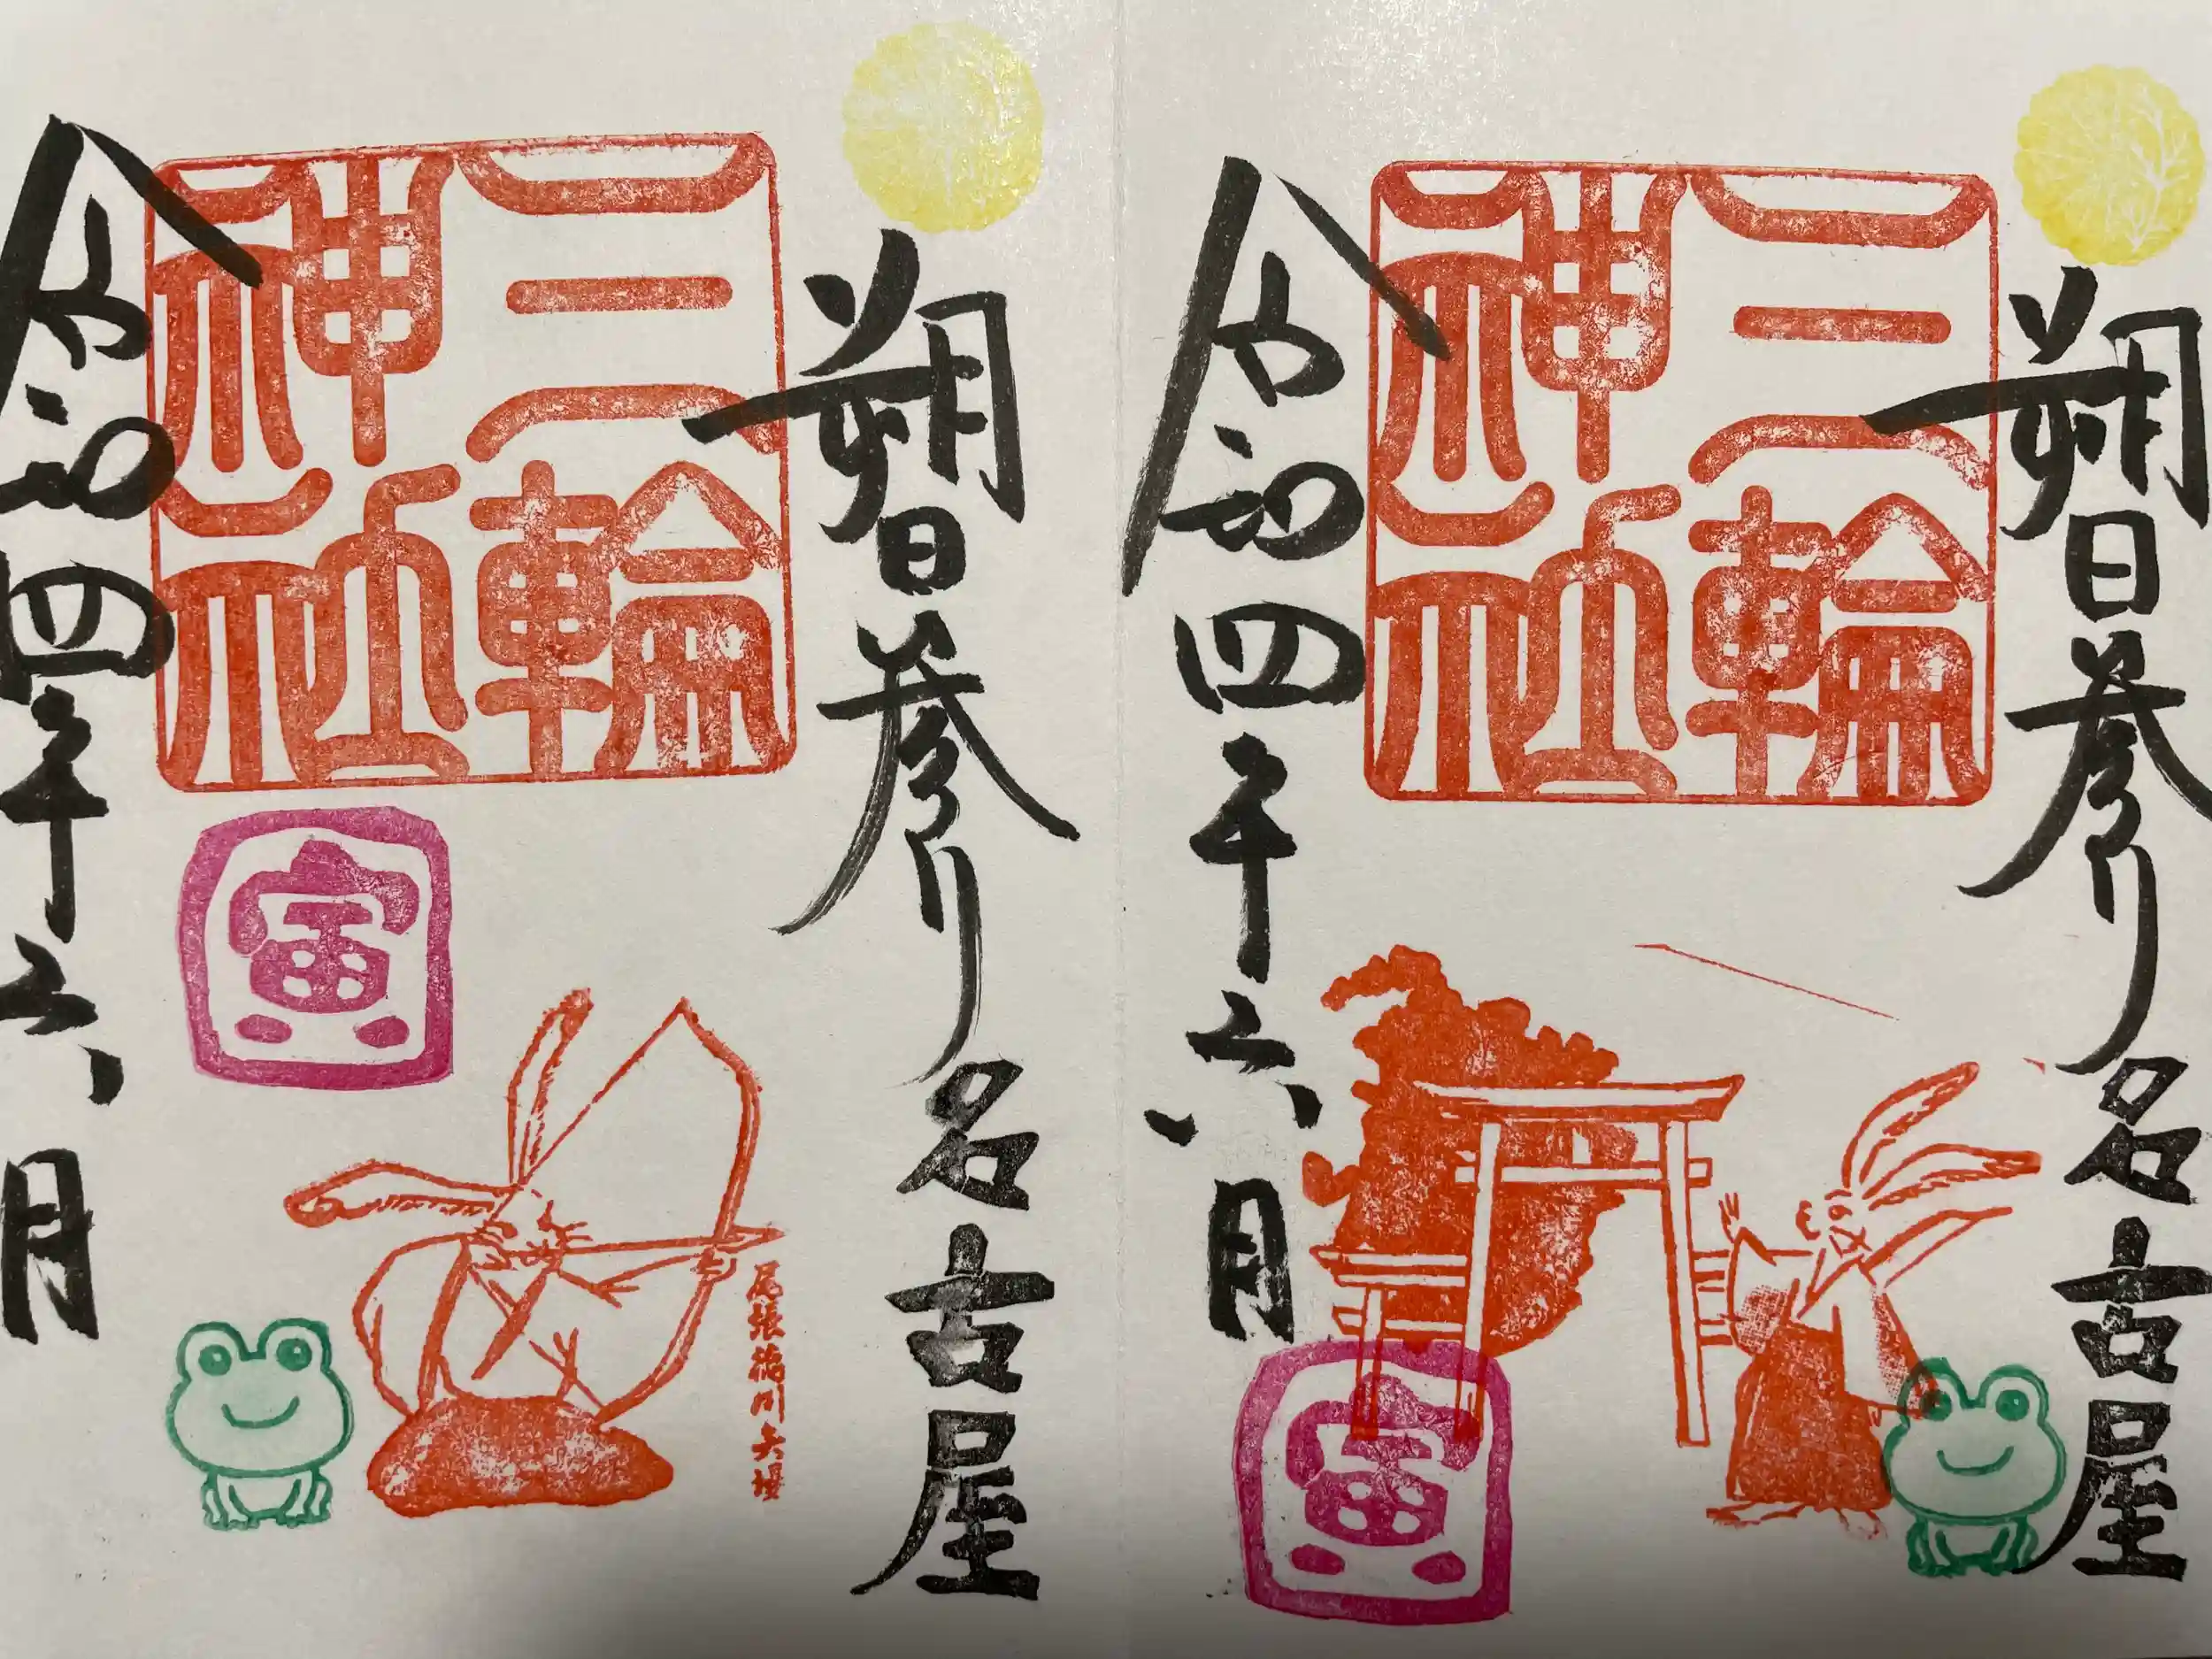 朔日参り名古屋
三輪
神社
令和四年六月
寅
尾張徳川矢場
朔日参り名古屋
三輪
神社
令和四年六月
寅